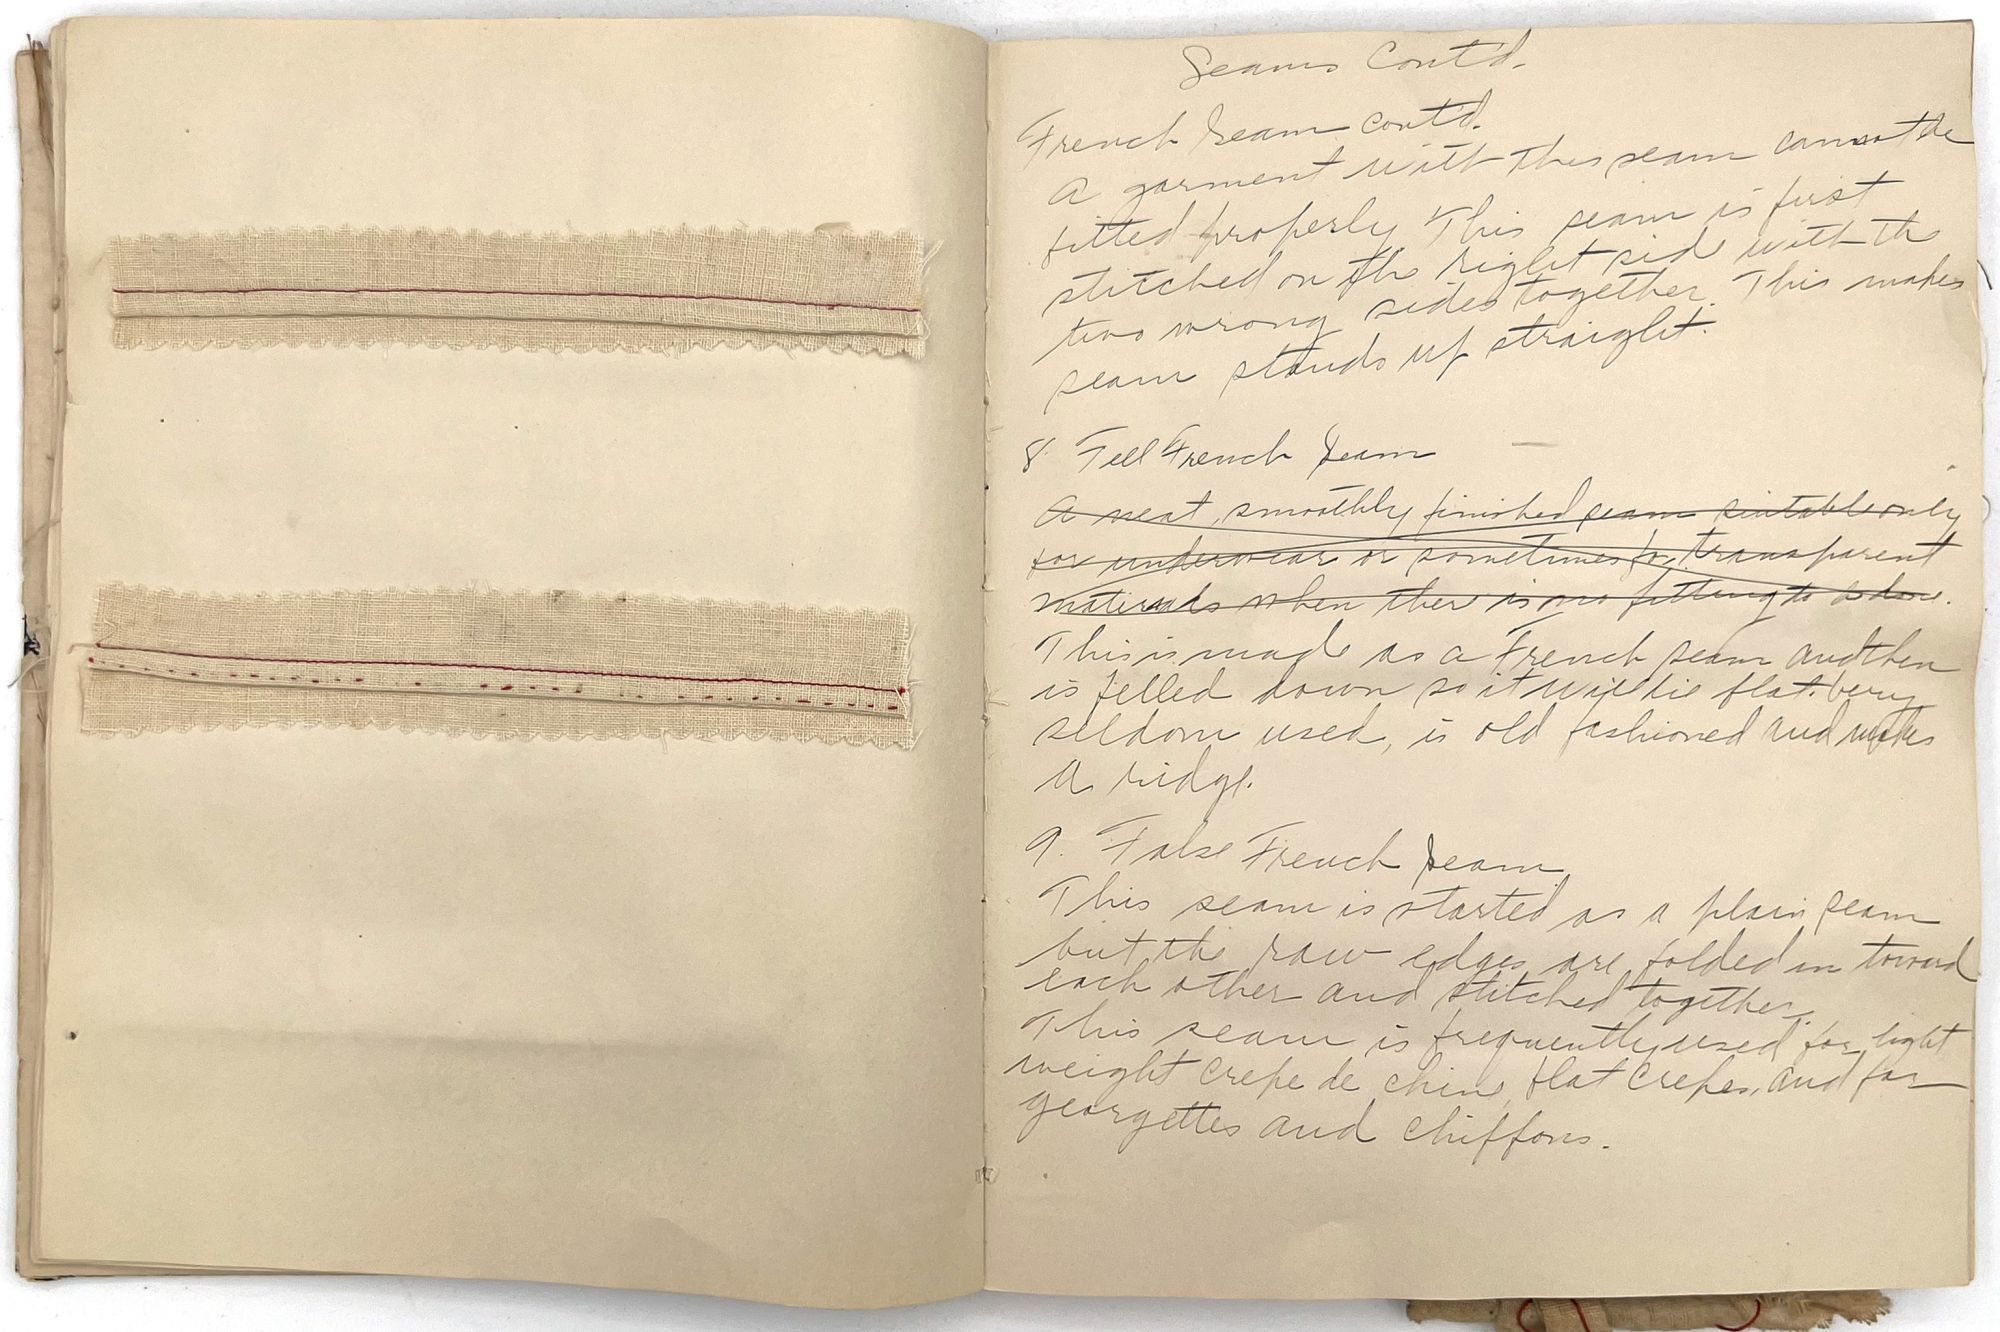 Seams Cont'd.
French Seam cont'd.
A garment with this seam cannot be
fitted properly This seam is first
stitched on the right side with the
two wrong sides together. This makes
seam stands up straight.
8 Fell French Seam
A neat, smoothly finished seam suitable only
for underwear or sometimes for transparent
materials when there is no fitting to be done.
This is made as a French seam and then
is felled down so it will lie flat. Very
seldom used, is old fashioned and makes
a ridge.
9. False French Seam
This seam is started as a plain seam
but the raw edges are folded in toward
each other and stitched together.
This seam is frequently used for light
weight crepe de chine, flat crepes, and for
georgettes and chiffons.